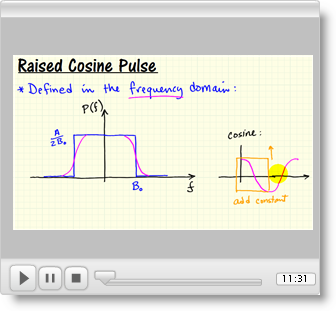 Raised Cosine Pulse
* Defined in the frequency domain:
P(f)
A/2B₀
B₀
f
cosine:
add constant
11:31